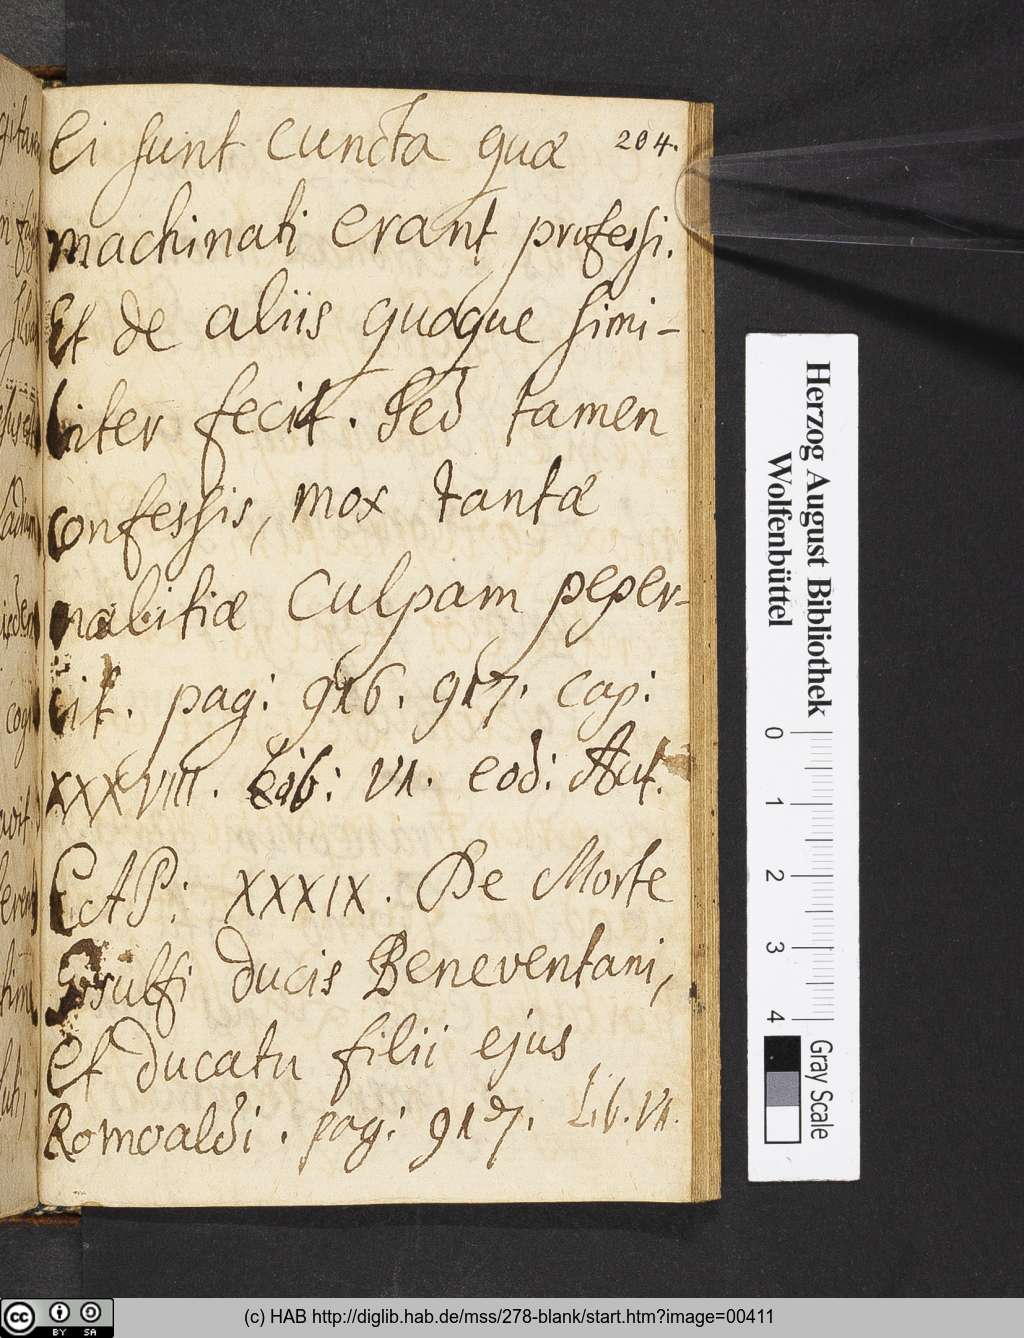 Ei sunt cuncta quæ 204.
machinati erant professi.
Et de aliis quoque simi-
liter fecit. Sed tamen
confessis, mox tantæ
malitiæ culpam peper-
cit. pag: 916. 917. cap:
XXXVIII. Lib: VI. eod: Aut.
CAP: XXXIX. De Morte
Gisulfi ducis Beneventani,
Et ducatu filii ejus
Romoaldi. pag: 917. Lib. VI.
Herzog August Bibliothek
Wolfenbüttel
0 1 2 3 4
Gray Scale
(c) HAB http://diglib.hab.de/mss/278-blank/start.htm?image=00411
cc BY SA